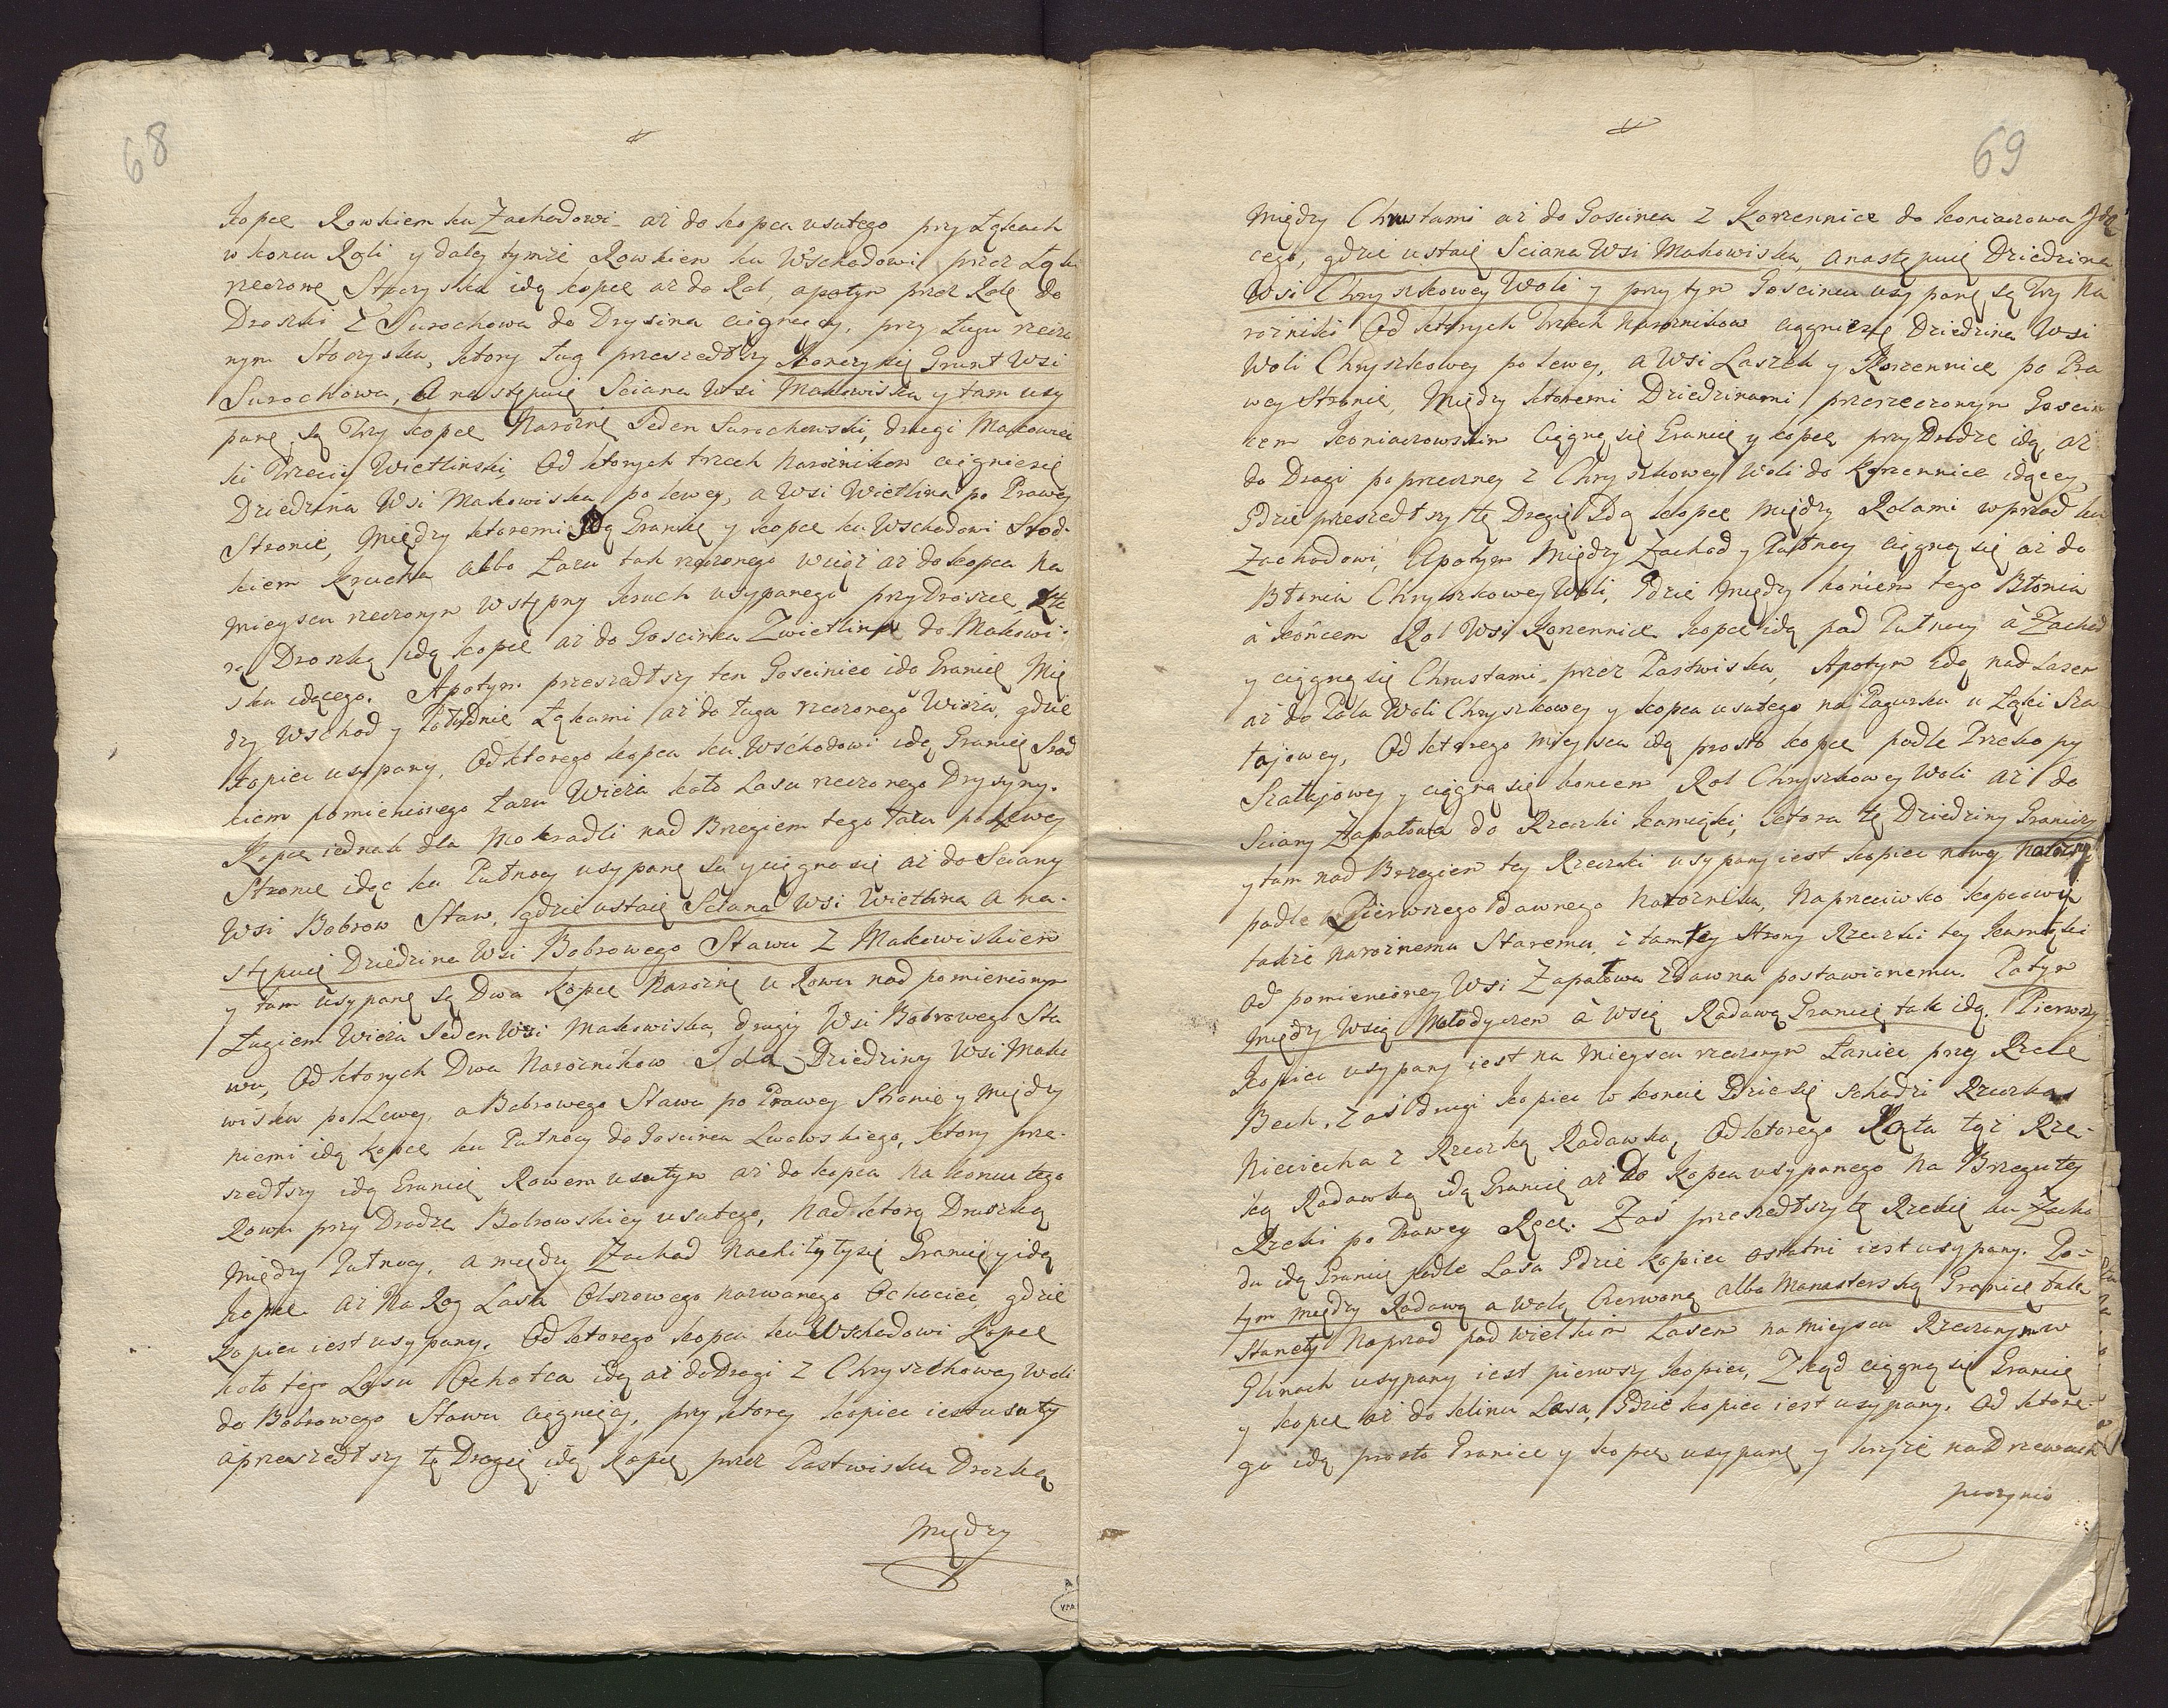 68
Kopce Rowkiem ku Zachodowi aż do kopca usutego przy Łąkach
w koncu Roli y daley tymże Rowkiem ku Wschodowi przez Łąki
rzeczone Staryska idą kopce aż do Rol, apotym przez Role do
Drozki z Surochowa do Drysina ciągnący, przy Ługu rzeczo
nym Staczysku, ktory Ług przeszedłszy konczy się Grunt Wsi
Surochowa, A następuie Sciana Wsi Makowiska y tam usy
pane są trzy kopce Narożne Jeden Surochowski, drugi Makowis
ki trzeci Wietlinski, Od ktorych trzech Narożnikow ciągnie się
Dziedzina Wsi Makowiska po lewey, a Wsi Wietlina po Prawey
Stronie, Między ktoremi Idą Granice y kopce ku Wschodowi Srod-
kiem Krucha albo Łazu tak rzeczonego wciąż aż do kopca na
mieyscu rzeczonym Wstępny Kruch usypanego przy Drozce,
rą Drozką idą kopce aż do Goscinca Zwietlina do Makowi-
ska idącego. Apotym przeszedłszy ten Gosciniec ido Granice Mię
dzy Wschod y Południe Łąkami aż do Ługu rzeczonego Wieża, gdzie
kopiec usypany, Od ktorego kopca ku Wschodowi idą Granice Srod
kiem pomienionego Łazu Wieża koło Lasu rzeczonego Drysyny.
Kopce iednak dla Mokradli nad Brzegiem tego Łazu po Lewey
Stronie idąc ku Pułnocy usypane są y ciągną się aż do Sciany
Wsi Bobrow Staw, gdzie ustaie Sciana Wsi Wietlina A na-
stępuie Dziedzina Wsi Bobrowego Stawu z Makowiskiem
y tam usypane są Dwa kopce Narożne u Rowu nad pomienionym
Ługiem Wieża Jeden Wsi Makowiska, drugi Wsi Bobrowego Sta
wu, Od ktorych Dwu Narożnikow Ida Dziedziny Wsi Mako
wiska po Lewey, a Bobrowego Stawu po Prawey Stronie y między
niemi idą kopce ku Pułnocy do Goscinca Lwowskiego, ktory prze-
szedłszy idą Granice Rowem usutym aż do kopca na koncu tego
Rowu przy Drodze Bobrowskiey usutego, Nad ktorą Drozką
między Pułnocy, a między Zachod nachiliły się Granice y idą
kopce aż na Rog Lasu Olszowego nazwanego Ochaciec, gdzie
kopiec iest usypany. Od ktorego kopca ku Wschodowi kopce
koło tego Lasu Ochotca idą aż do Drogi z Chryszkowey Woli
do Bobrowego Stawu ciągnącey, przy ktorey kopiec iest usuty
a przeszedłszy tę Drogę idą kopce przez Pastwiska Drozką
między
69
między Chrustami aż do Goscinca z Korzennice do Koniaczowa Idą
cego, gdzie ustaie Sciana Wsi Makowiska, a następuie Dziedzina
Wsi Chryszkowey Woli y przy tym Goscincu usypane są trzy Na
rożniki Od ktorych trzech Narożnikow ciągnie się Dziedzina Wsi
Woli Chryszkowey po lewey, a Wsi Laszek y Korzennice po Pra
wey Stronie, Między ktoremi Dziedzinami przerzeczonym Goscin
cem Koniaczowskim Ciągną się Granice y kopce przy Drodze idą, aż
do Drogi poprzeczney z Chryszkowey Woli do Korzennice idącey,
Gdzie przeszedłszy tę Drogę Idą kopce między Rolami wprzod ku
Zachodowi, Apotym Między Zachod y Pułnocy ciągną się aż do
Błonia Chryszkowey Woli, Gdzie między koncem tego Błonia
a koncem Rol Wsi Korzennice kopce idą pod Pułnocy a Zachod
y ciągną się Chrustami przez Pastwiska, Apotym Idą nad Lasem
aż do Pola Woli Chryszkowey y kopca usutego na Pagurku u Łąki Sza
tajowey, Od ktorego mieysca idą prosto kopce podle Przekopy
Szatajowey y ciągną się koncem Rol Chryszkowey Woli aż do
Sciany Zapałowa do Rzeczki Łomiąski, ktora tę Dziedziny Graniczy
y tam nad Brzegiem tey Rzeczki usypany iest kopiec nowy Narożny
podle Pierwszego dawnego Narożnika, Naprzeciwko kopcowi
także narożnemu Staremu z tamtey Strony Rzeczki tey
od pomienioney Wsi Zapałowa zdawna postawionemu. Potym
między Wsią Mołodyczem a Wsią Radawą Granice tak idą. Pierwszy
kopiec usypany iest na mieyscu rzeczonym Łaniec przy Rzece
Bech, zaś drugi kopiec w koncie Gdzie się schodzi Rzeczka
Nieciecha z Rzeczką Radawską, Od ktorego Kąta tąż Rze-
ką Radawską idą Granice aż do kopca usypanego na Brzegu tey
Rzeki po Prawey Ręce. Zaś przeszedłszy tę Rzekę ku Zacho
du idą Granice podle Lasu Gdzie kopiec ostatni iest usypany. Po-
tym między Radawą a Wolą Czerwoną albo Manasterską Granice tak
Stanęły Naprzod pod wielkim Lasem na mieyscu Rzeczonym w
Glinach usypany iest pierwszy kopiec, Zkąd ciągną się Granice
y kopce aż do klinu Lasa, Gdzie kopiec iest usypany. Od ktore-
go idą prosto Granice y kopce usypane y krzyże na Drzewach